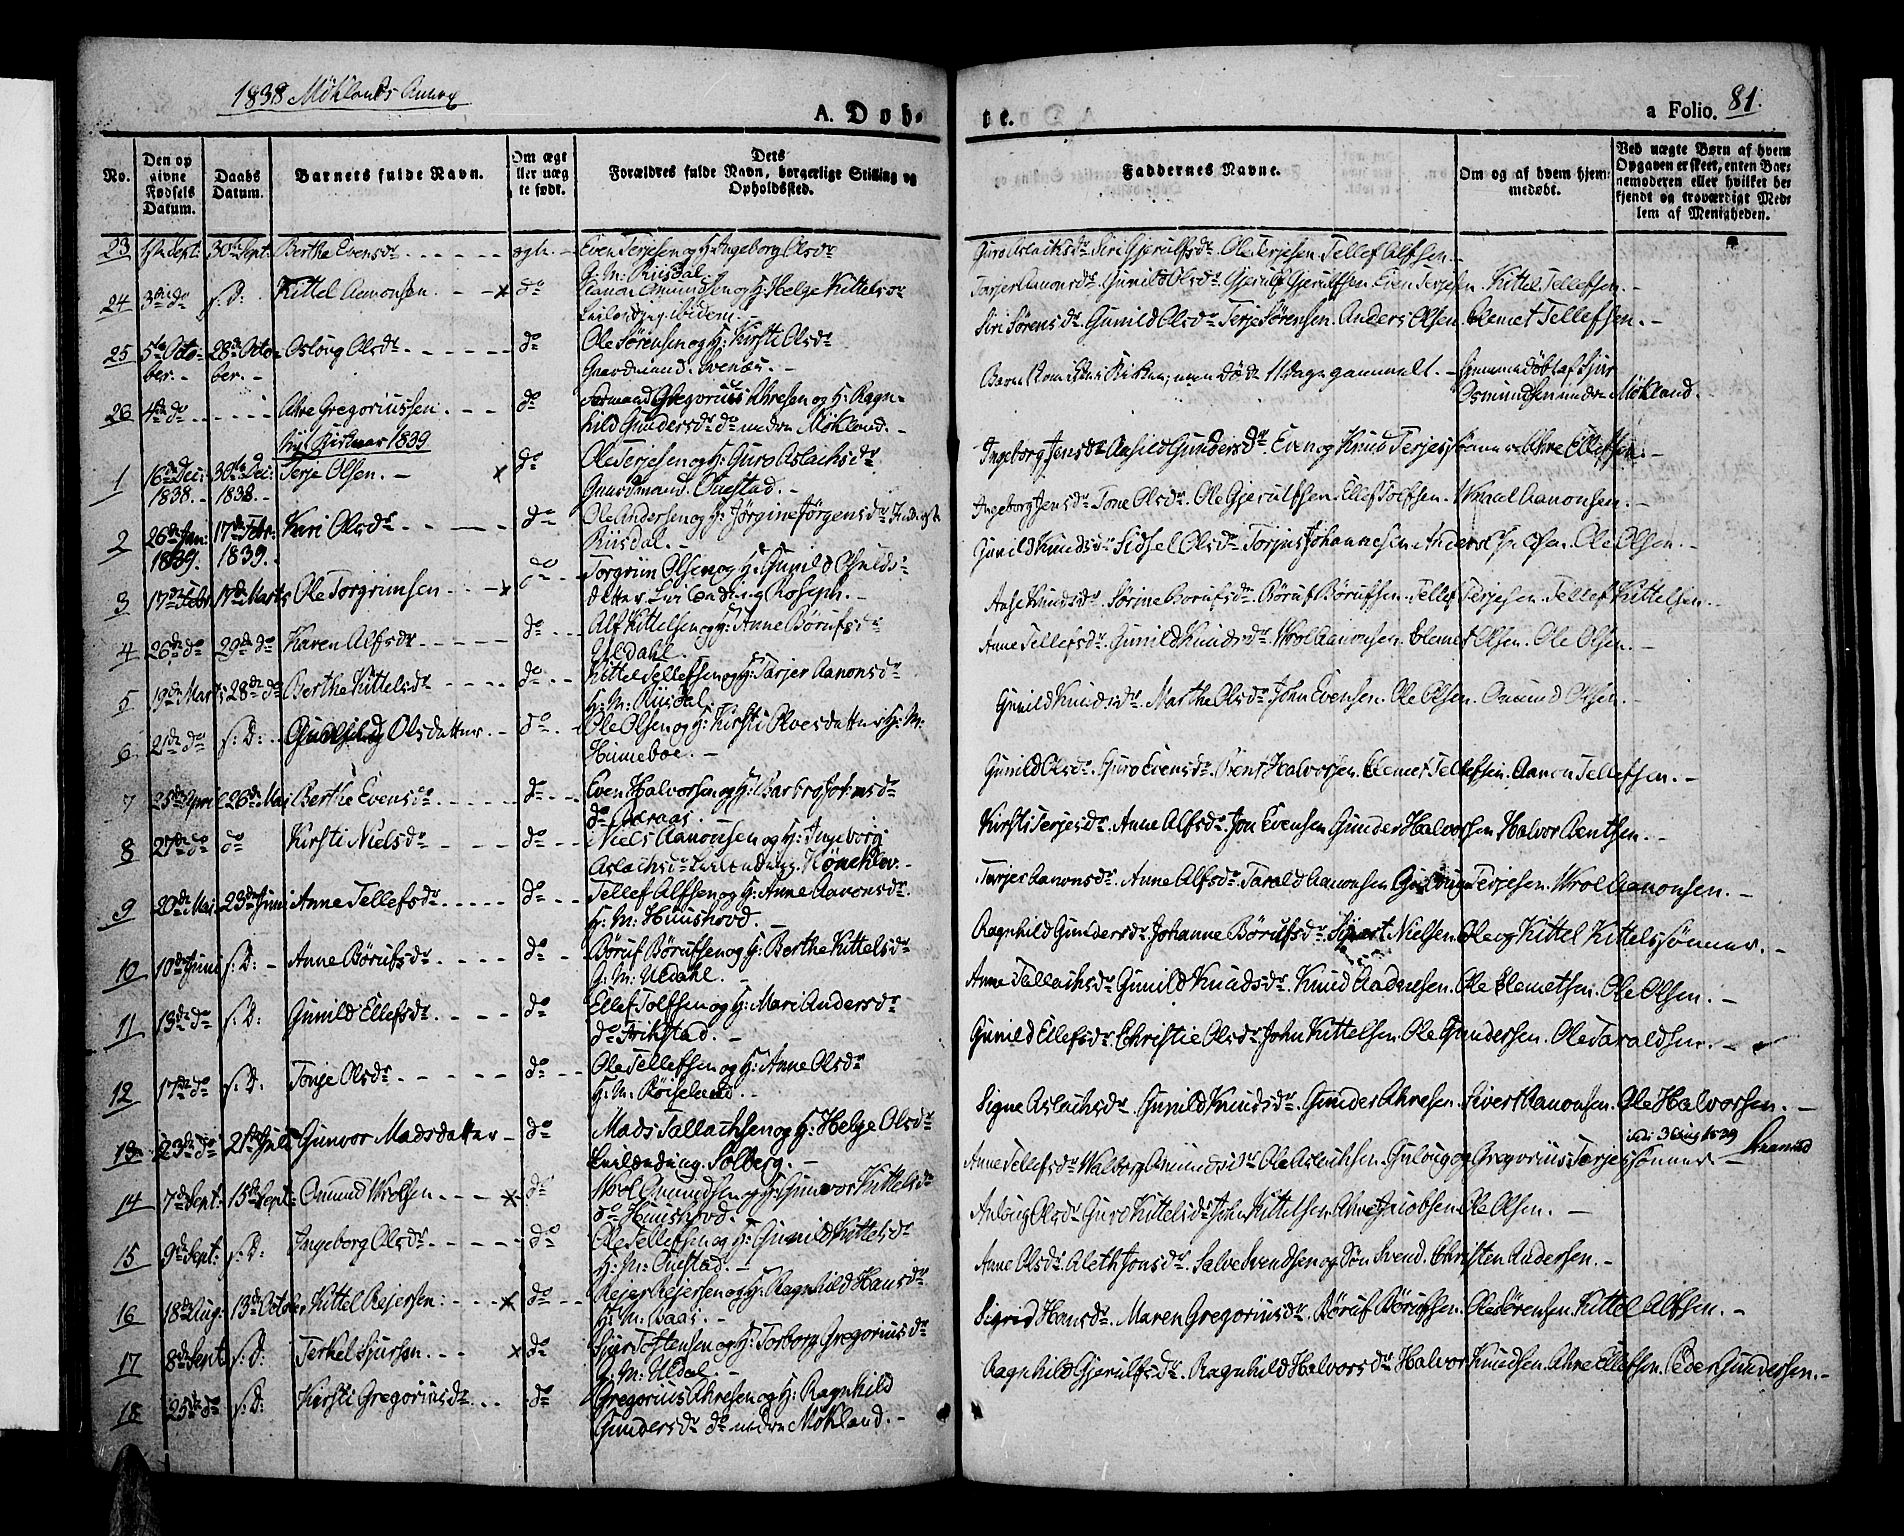 1838 Møklands Annex
A. Døb-
te.
a Folio. 81.
No.
Den op
givne
Fødsels
Datum.
Daabs
Datum.
Barnets fulde Navn.
Om ægt
ller uæg
te født.
Dets
Forældres fulde Navn, borgerlige Stilling og
Opholdssted.
Faddernes Navne.
Om og af hvem hjem-
medøbt.
Ved uægte Børn af hvem
Opgaven er skeet, enten Bar-
nemoderen eller hvilket be-
kjendt og troværdigt Med-
lem af Menigheden.
23 Sept: 30te Sept: Berthe Evensdr ægte Even Terjesen og H: Ingeborg Olsdr
G: M: Riisdal.
Guro Aslachsdr Siri Gjerulfsdr Ole Terjesen. Tellef Alfsen.
24 3die do s: D: Kittel Aanonsen. do Aanon Amundsen og H: Helge Kittelsdr
ibidem.
Torjer Aanonsdr Gunild Olsdr Gjerulf Gjerulfsen Even Terjesen Kittel Tellefsen.
25 5te Octo- 28de Octo- Aslaug Olsdr do Ole Sørensen og H: Kirsti Olsdr
ber. ber. Gaardmand. Svenæs.
Siri Sørensdr. Gunild Olsdr Terje Sørensen. Anders Olsen. Clemet Tellefsen.
26 4de do Ahre Gregoriussen. do Gregorius Ahresen og H: Ragn-
hild Gundersdr do nedre Møkland.
Barnet kom ikke i Kirken; men døde 11 Dage gammelt. Hjemmedøbt af Sjur
Osmundsen nedre Møkland.
Nyt Kirkeaar 1839
1 16de Dec: 30te Dec: Terje Olsen. do Ole Terjesen og H: Guro Aslachsdr
1838. 1838. Gaardmand. Ouestad.
Ingeborg Jensdr Aashild Gundersdr. Even og Knud Terjessønner Ahre Ellefsen.
2 26de Jan: 17de Febr: Kari Olsdr do Ole Andersen og H: Jørgine Jørgensdr
1839. 1839. Riisdal.
Ingeborg Jensdr Tone Olsdr. Ole Gjerulfsen. Ellef Tolfsen. Wraal Aanonsen.
3 17de Febr 17de Marts Ole Torgrimsen do Torgrim Olsen og H: Gunild
datter Roseph.
Gunild Knudsdr Sidsel Olsdr Torjus Johannesen Anders Olsen. Ole Olsen.
4 26de do 29de do Karen Alfsdr do Alf Kittelsen og H: Anne Børufsdr
Uldahl.
Aase Knudsdr. Sørine Børufsdr. Børuf Børufsen. Tellef Terjesen. Tellef Kittelsen.
5 19de Marts 28de do Berthe Kittelsdr do Kittel Tellefsen og H: Tarjer Aanonsdr
G: M: Riisdal.
Anne Tellefsdr. Gunild Knudsdr. Wrol Aanonsen. Clemet Olsen. Ole Olsen.
6 21de do s: D: Olsdatter do Ole Olsen og H: Kirsti Olvesdatter H: M:
Hinneboe.
Gunild Knudsdr. Marthe Olsdr. John Evensen. Ole Olsen. Omund Olsen.
7 25de April 26de Mai Berthe Evensdr do Even Halvorsen og H: Barbro Johnsdr
do Aaraas.
Gunild Olsdr. Guro Evensdr. Bent Halvorsen. Clemet Tellefsen. Aanon Tellefsen.
8 27de do do Kirsti Nielsdr do Niels Aanonsen og H: Ingeborg
Aslachsdr
Kirsti Terjesdr. Anne Alfsdr. Jon Evensen Gunder Halvorsen. Halvor Bentsen.
9 20de Mai 23de Juni Anne Tellefsdr do Tellef Alfsen og H: Anne Aanonsdr.
H: M: Huushovd.
Tarjer Aanonsdr. Anne Alfsdr. Tarald Aanonsen. Terjesen. Wrol Aanonsen.
10 10de Juni s: D: Anne Børufsdr do Børuf Børufsen og H: Berthe Kittelsdr
G: M: Uldahl.
Ragnhild Gundersdr. Johanne Børufsdr. Nielsen. Ole og Kittel Kittelssønner.
11 13de do s: D: Gunild Ellefsdr. do Ellef Tolfsen og H: Mari Andersdr
do Frikstad.
Anne Tellachsdr Gunild Knudsdr. Knud Aadnesen. Ole Clemetsen. Ole Olsen.
12 17de do s: D: Tonje Olsdr do Ole Tellefsen og H: Anne Olsdr
H: M: Røiseland.
Gunild Ellefsdr. Christie Olsdr. John Kittelsen. Ole Gundersen. Ole Taraldsen.
13 23de do 21de Juli Gunvor Madsdatter do Mads Tallachsen og H: Helge Olsdr
Solberg.
Signe Aslachsdr. Gunild Knudsdr. Gunder Ahresen. Sivert Aanonsen. Ole Halvorsen.
14 7de Sept: 15de Sept: Omund Wrolsen do Wrol Omundsen og H: Gunvor Kittelsdr
do Huushovd.
Anne Tellefsdr Walborg Amundsdr Ole Aslachsen. Guloug og Gregorius Terjessønner
15 9de Sept: s: D: Ingeborg Olsdr do Ole Tellefsen og H: Gunild Kittelsdr
H: M: Ouestad.
Anloug Olsdr Guro Kittelsdr John Kittelsen. Ahre Jacobsen. Ole Olsen.
16 18de Aug: 13de October Kittel Rejersen do Rejer Rejersen og H: Ragnhild Hansdr
H: M: Baas.
Anne Olsdr. Aleth Jonsdr. Salve Svendsen og Søn Svend. Christen Andersen.
17 8de Sept s: D: Terkel Sjursen do Sjur Tostensen og H: Torborg Gregoriusdr
G: M: Uldal.
Sigrid Hansdr. Maren Gregoriusdr. Børuf Børufsen. Ole Sørensen. Kittel Alfsen.
18 25de do s: D: Kirsti Gregoriusdr do Gregorius Ahresen og H: Ragnhild
Gundersdr do nedre Møkland.
Ragnhild Gjerulfsdr. Ragnhild Halvorsdr Halvor Knudsen. Ahre Ellefsen. Peder Gundersen.